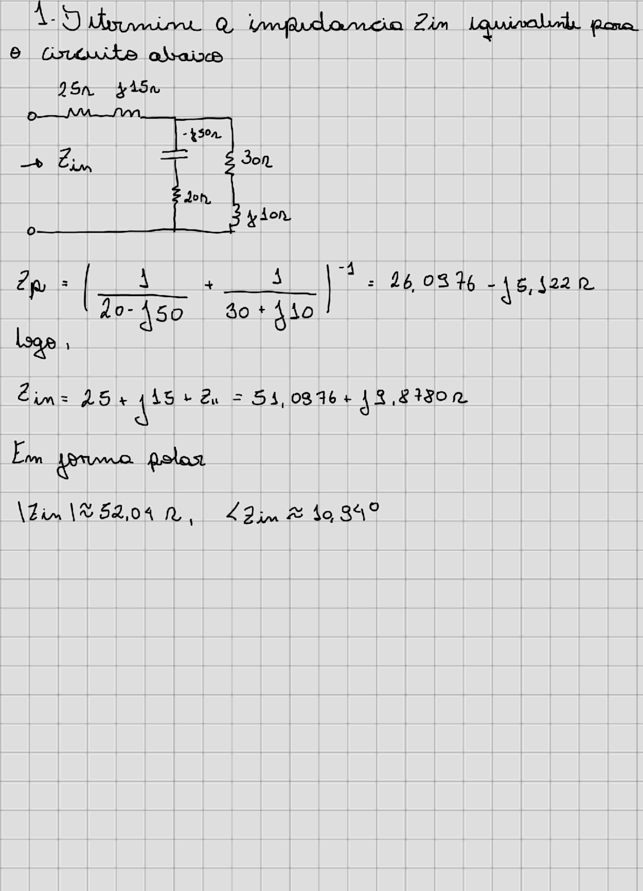 1. Determine a impedancia Zin equivalente para
o circuito abaixo
25Ω j15Ω
-j50Ω
→ Zin
30Ω
20Ω
j10Ω
Zp = ( 1/(20-j50) + 1/(30+j10) )^-1 = 26,0976 - j5,122 Ω
logo,
Zin = 25 + j15 + Z11 = 51,0976 + j9,8780Ω
Em forma polar
|Zin| ≈ 52,04 Ω, ∠Zin ≈ 10,94°